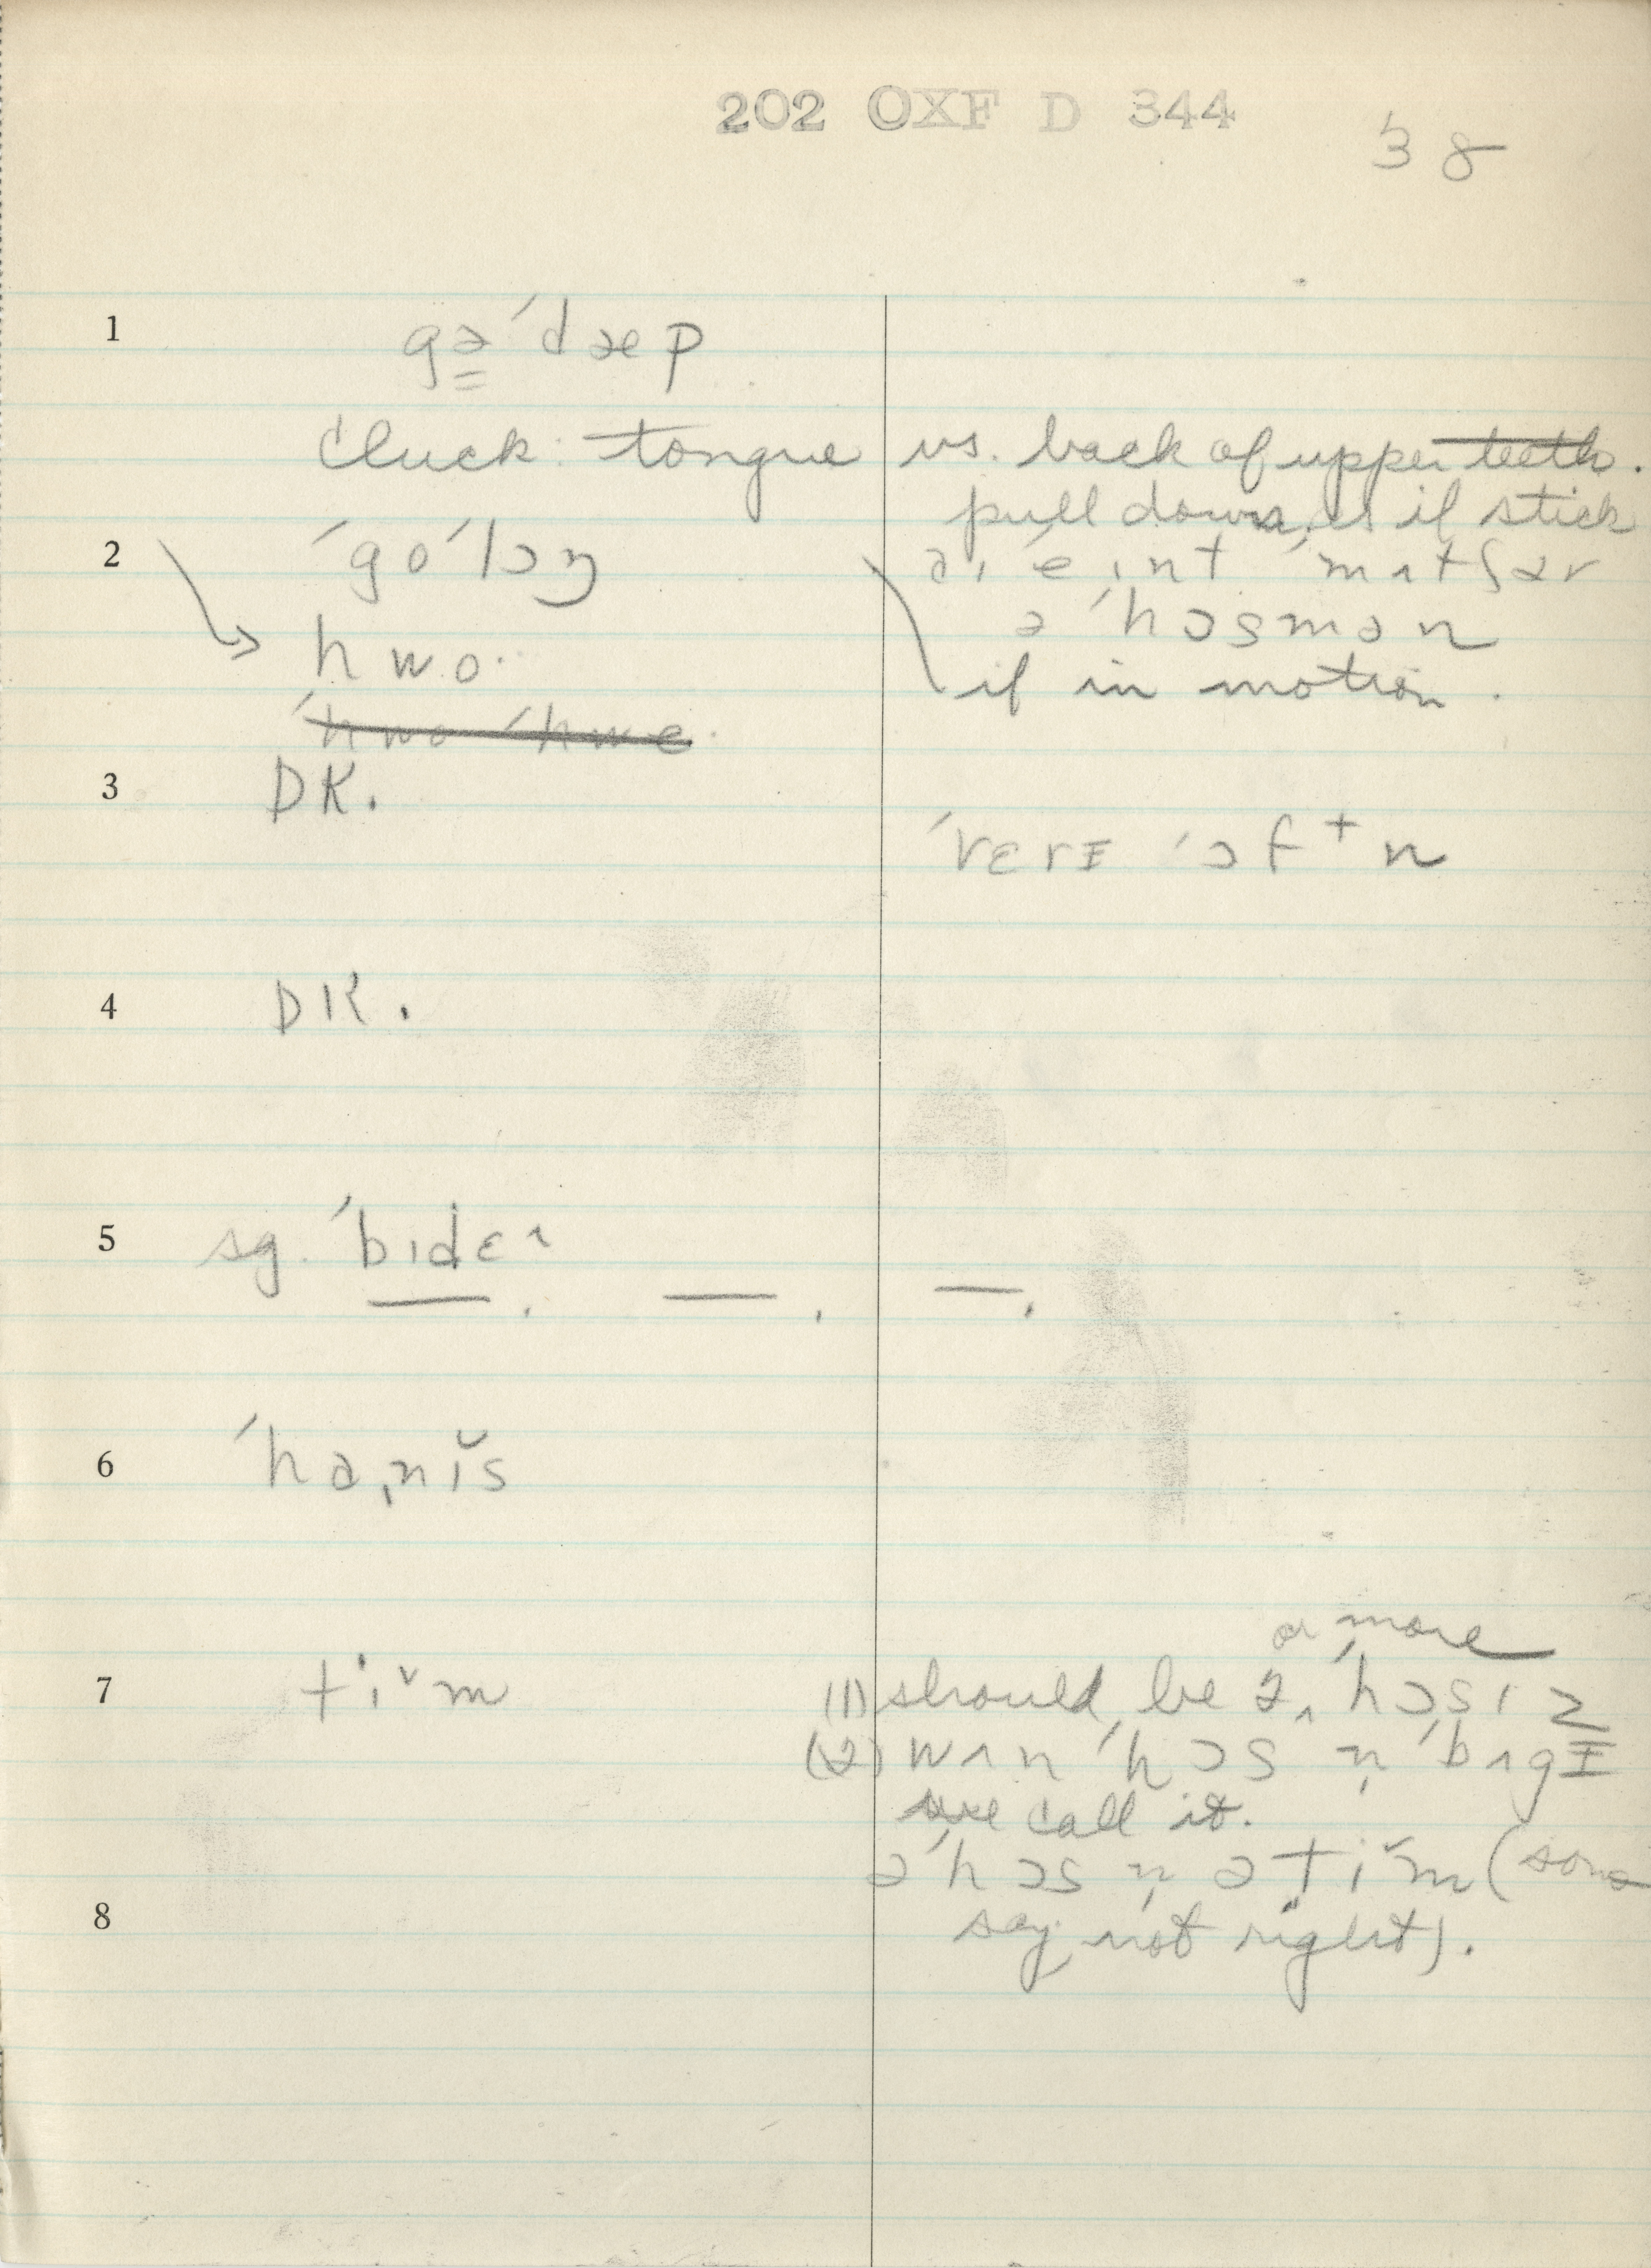 202 OXF D 344
38
1 gə̳ ˈdæp
Cluck: tongue vs. back of upper teeth.
pull down, as if stick
2 ˈgoˈlɔŋ
hwo·
ˈhwo ˈhwe
aɪ ˈeɪnt ˈmʌtʃ ər
ə ˈhɔsmən
if in motion.
3 DK.
ˈvɛrɪ ˈɔf t n
4 DK.
5 sg. ˈbɪdɛʌ
6 ˈhaˌnɪ̆s
7 tiˇm
or more
(1) should be əˌ ˈhɔsɪz
(2) wʌn ˈhɔs n̩ ˈbʌgɪ
we call it.
ə ˈhɔs n̩ ə tiˇm (some
8 say not right).